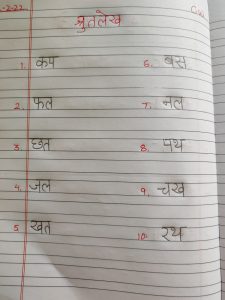 -2-22
श्रुतलेख
1. कप
2. फल
3. छत
4. जल
5. खत
6. बस
7. नल
8. पथ
9. चख
10. रथ